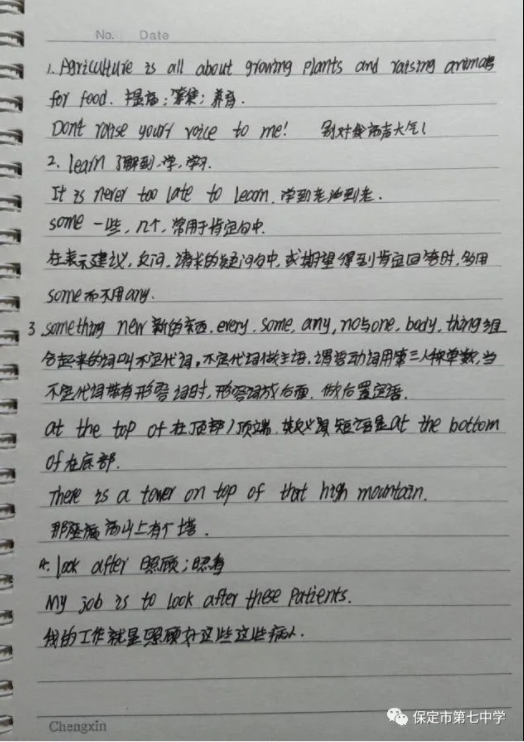 No.    Date
1. Agriculture is all about growing plants and raising animals
for food. 提高；筹集；养育.
Dont raise your voice to me!  别对我高声大气！
2. learn 了解到，学，学习.
It is never too late to learn. 学到老活到老.
some 一些，几个，常用于肯定句中.
在表示建议，反问，请求的疑问句中，或期望得到肯定回答时，多用
some而不用any.
3 something new 新的东西. every, some, any, no与one, body, thing组
合起来的词叫不定代词，不定代词做主语，谓语动词用第三人称单数，当
不定代词带有形容词时，形容词放后面，做后置定语.
at the top of 在顶部/顶端，其反义短语是at the bottom
of在底部.
There is a tower on top of that high mountain.
那座高山上有个塔.
4. look after 照顾；照看
My job is to look after these patients.
我的工作就是照顾好这些这些病人.
Chengxin
保定市第七中学